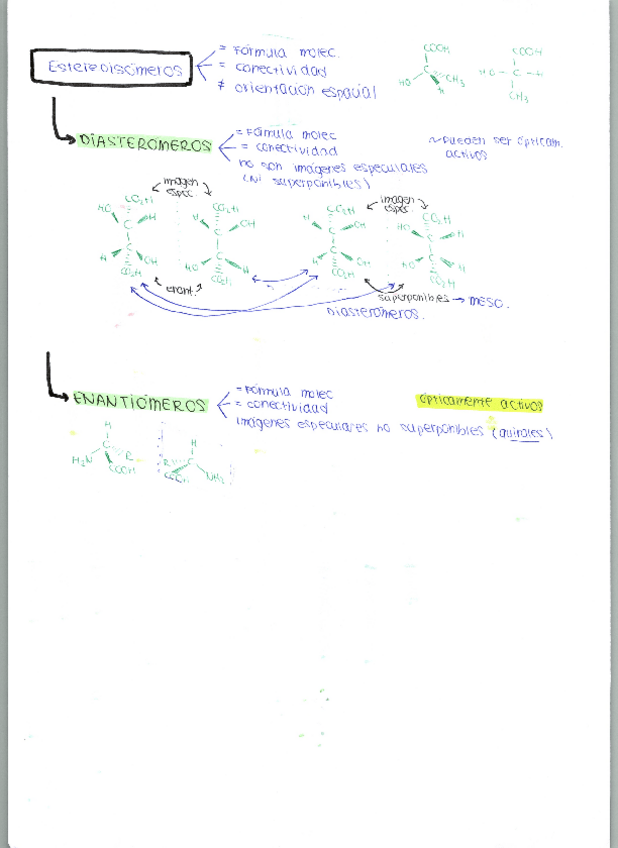 Estereoisómeros
= Fórmula molec.
= conectividad
≠ orientación espacial
COOH
C
HO
CH3
H
COOH
HO - C - H
CH3
DIASTERÓMEROS
= Fórmula molec
= conectividad
no son imágenes especulares
(Ni superponibles)
~ Pueden ser ópticam.
activos
imagen
espec.
imagen
espec.
CO2H
HO
C
H
C
H
OH
CO2H
CO2H
H
C
OH
C
HO
H
CO2H
CO2H
H
C
OH
C
H
OH
CO2H
CO2H
HO
C
H
C
HO
H
CO2H
enant.
superponibles → MESO.
Diasterómeros.
ENANTIÓMEROS
= Fórmula molec
= conectividad
imágenes especulares no superponibles (quirales)
ópticamente activos
H
C
R
H2N
COOH
H
R
C
COOH
NH2